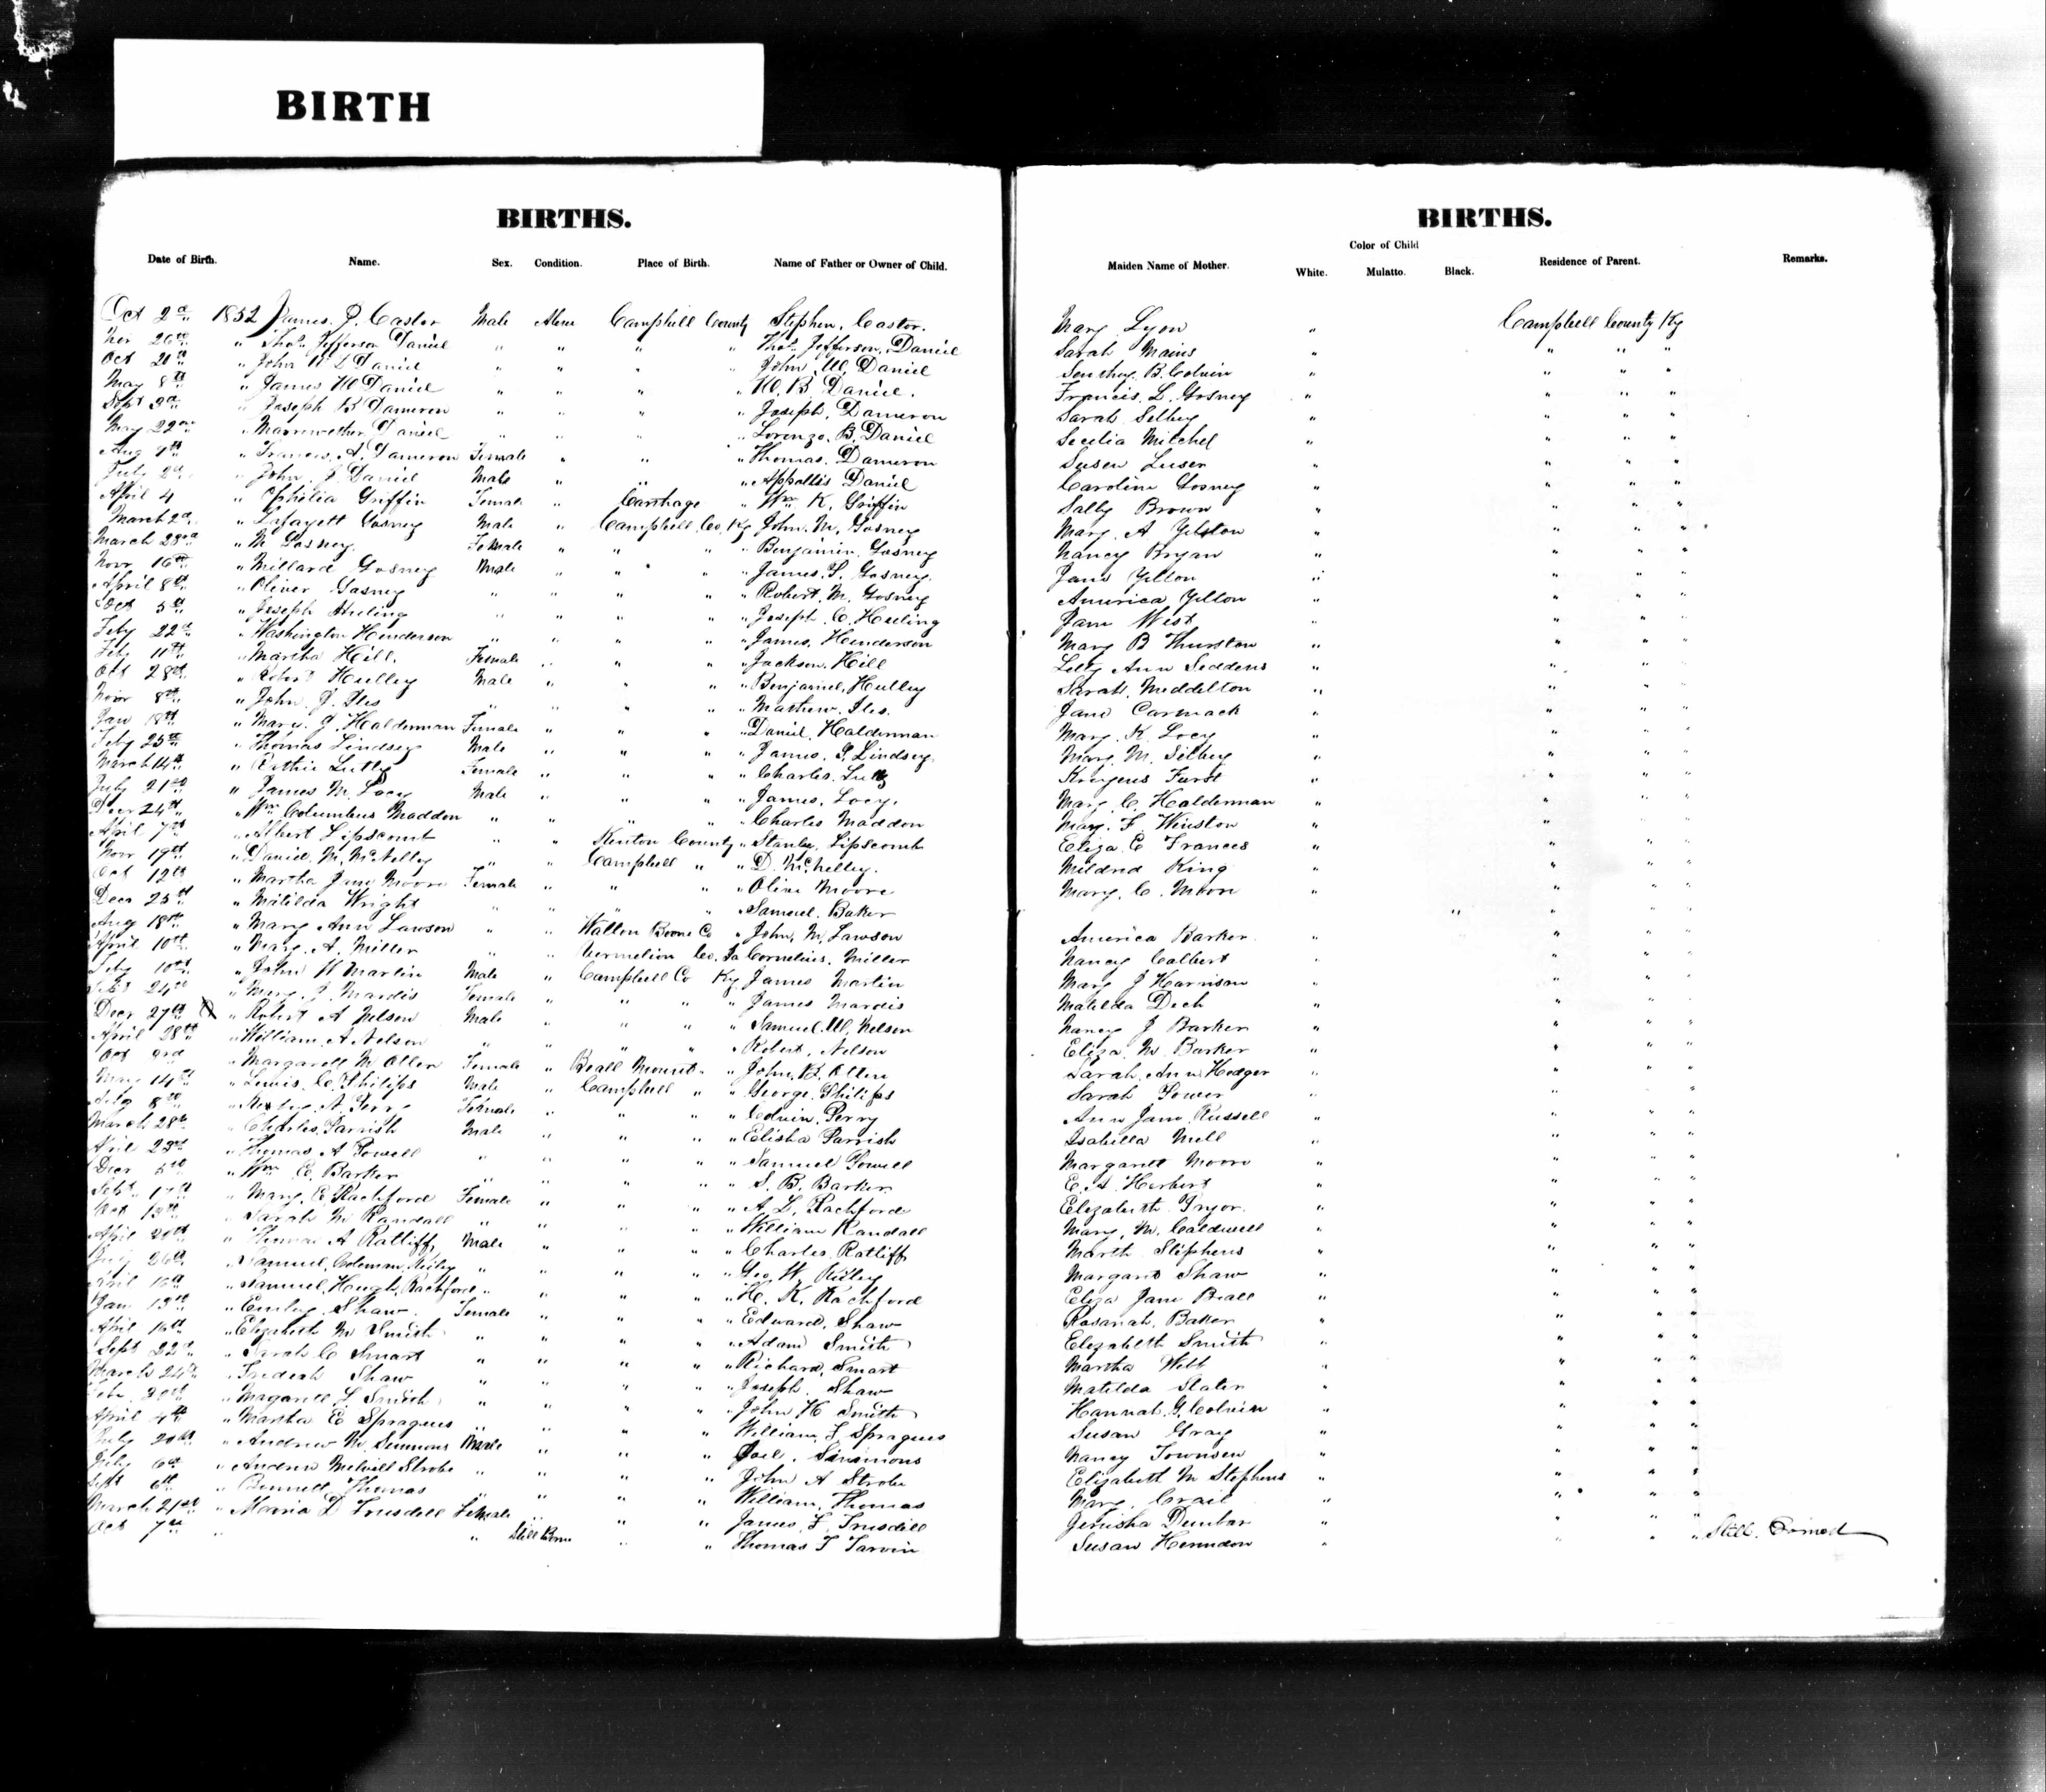 BIRTH
BIRTHS.
BIRTHS.
Date of Birth. Name. Sex. Condition. Place of Birth. Name of Father or Owner of Child. Maiden Name of Mother. Color of Child White. Mulatto. Black. Residence of Parent. Remarks.
Oct 2d 1852 James J. Castor Male Alive Campbell County Stephen. Castor. Mary Lyon " Campbell County Ky
26th " Thos Jefferson Daniel " " " " Thos Jefferson. Daniel Sarah Mains " " " "
Oct 20th " John W D Daniel " " " " John W. Daniel B. Colvin " " " "
May 8th " James W Daniel " " " " W. B. Daniel. Francis. L. Gosney " " " "
Sept 3d " Joseph B Dameron " " " " Joseph. Dameron Sarah Selbey " " " "
May 22nd " Marrwether Daniel " " " " Lorenzo. B. Daniel Secelia Mitchel " " " "
Aug 9th " Frances. A. Dameron Female " " " Thomas. Dameron Susen Luser " " " "
July 2d " John J Daniel Male " " " Appollis Daniel Caroline Gosney " " " "
April 4 " Ophilia Griffin Female " Carthage " Wm K. Griffin Sally Brown " " " "
March 2d " Lafayett Gosney Male " Campbell. Co. Ky John. M. Gosney Mary. A Yelton " " " "
March 23rd " M Gosney. Female " " " " Benjamin. Gosney Nancy Bryan " " " "
Novr 16th " Millard Gosney Male " " " " James. S. Gosney. Jane Yelton " " " "
April 8th " Oliver Gosney " " " " " Robert. M. Gosney America Yelton " " " "
Oct 5th " Joseph Huling " " " " " Joseph. C. Huling Jane West " " " "
Feby 22d " Washington Henderson " " " " " James. Henderson Mary B Thurston " " " "
Feb 11th " Martha Hill. Female " " " " Jackson. Hill Letty Ann Seddens " " " "
Oct 28th " Robert Hulley Male " " " " Benjamin. Hulley Sarah. Meddelton " " " "
Novr 8th " John. J. Iles " " " " " Mathew. Iles. Jane Carmack " " " "
Jan 18th " Mary. J. Halderman Female " " " " Daniel. Halderman Mary. K. Locy " " " "
Feby 25th " Thomas Lindsey Male " " " " James. S. Lindsey. Mary. M. Selbey " " " "
March 14th " Lutty Female " " " " Charles. Furst " " " "
July 21st " James M. Locy Male " " " " James. Locy. Mary. C. Halderman " " " "
Decr 24th " Wm Columbus Maddon " " " " " Charles Maddon Mary. F Winston " " " "
April 7th " Albert Lipscomb " " Kenton County " Stanley. Lipscomb Eliza. E Frances " " " "
Novr 19th " Daniel. M. McNelley " " Campbell " " D. McNelley. Mildred King " " " "
Oct 12th " Martha Jane Moore Female " " " " Oliver Moore Mary. C. Moore " " " "
Decr 25th " Matilda Wright " " " " " Samuel. Baker " " " "
Aug 18th " Mary Ann Lawson " " Walton Boone Co " John. M. Lawson America Barker " " " "
April 10th " Mary. A. Miller " " Vermelion Co. Cornelius. Miller Nancy Colbert " " " "
Feby 10th " John W Martin Male " Campbell Co Ky James Martin Mary J Harrison " " " "
24th " Mary. J Mardis Female " " " " James Mardis Matilda Dech " " " "
Decr 27th " Robert A Nelson Male " " " " Samuel. W. Nelson Nancy J Barker " " " "
April 28th " William. A Nelson " " " " " Robert. Nelson Eliza. M. Barker " " " "
Oct 3rd " Margarett M Allen Female " Beall Mount " " John. B. Allen Sarah. Ann Hodger " " " "
May 14th " Lewis. C. Philips Male " Campbell " " George. Philips Sarah Power " " " "
8th " A. Perry Female " " " " Edwin. Perry Ann Jane Russell " " " "
March 28th " Charles. Parrish Male " " " " Elisha Parrish Isabella Mell " " " "
April 23rd " Thomas A Powell " " " " " Samuel Powell Margarett Moore " " " "
Decr 5th " Wm C. Barker " " " " " S. B. Barker. E. A. Herbert " " " "
Sept 17th " Mary. E. Rachford Female " " " " A. L. Rachford Elizabeth Pryor. " " " "
Oct 13th " Sarah M Randall " " " " " William Randall Mary. M. Caldwell " " " "
April 20th " Thomas A Ratliff Male " " " " Charles. Ratliff Marth Stephens " " " "
26th " Samuel. Coleman. Riley " " " " " Geo. W. Riley Margaret Shaw " " " "
April 16th " Samuel. Hough. Rachford " " " " " H. K. Rachford Eliza Jane Beall " " " "
Jan 13th " Emley. Shaw Female " " " " Edward. Shaw Rosanah. Baker " " " "
April 16th " Elizabeth M Smith " " " " " Adam Smith Elizabeth Smith " " " "
Sept 22d " Sarah C Smart " " " " " Richard. Smart Martha Webb " " " "
March 24th " Shaw " " " " " Joseph. Shaw Matilda Slater " " " "
20th " Margarett L. Smith " " " " " John H Smith Hannah. G. Colvin " " " "
April 4th " Martha E Spragues " " " " " William. F Spragues Susan Gray " " " "
July 20th " Andrew M. Simmons Male " " " " Joel. Simmons Nancy Townsen " " " "
July 6th " Andrew Melvill Strobe " " " " " John A Strobe Elizabeth M Stephens " " " "
Sept 6th " Bennett. Thomas " " " " " William. Thomas Mary. Crail " " " "
March 21st " Morria D Trusdell Female " " " " James. F. Trusdell Jerusha Dunbar " " " "
Oct 7th " " Still Born " " Thomas T Tarvin Susan Herndon " " " " Still.